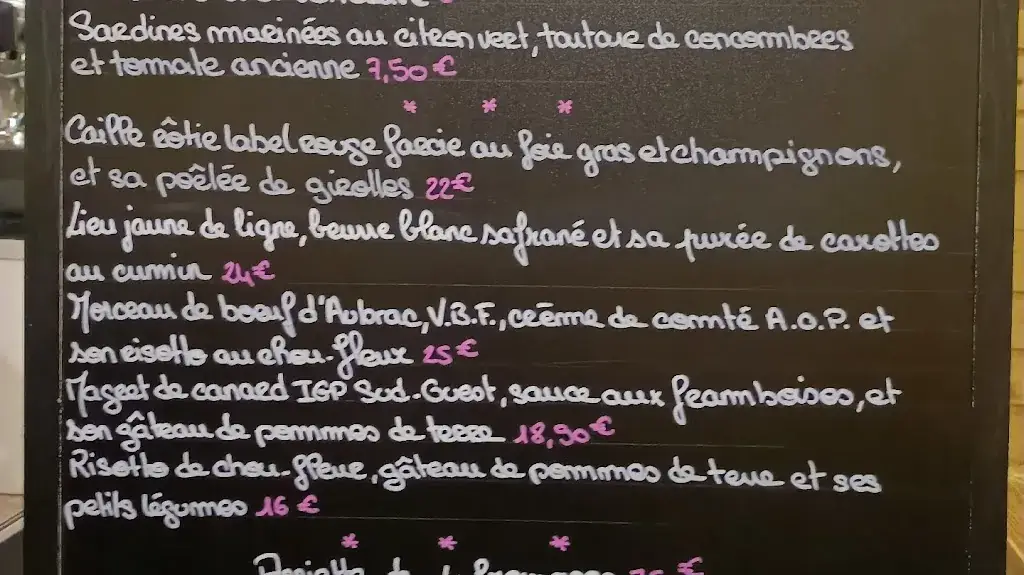 Sardines marinées au citron vert, tartare de concombres
et tomate ancienne 7,50 €
* * *
Caille rôtie label rouge farcie au foie gras et champignons,
et sa poêlée de girolles 22€
Lieu jaune de ligne, beurre blanc safrané et sa purée de carottes
au cumin 24€
Morceau de boeuf d'Aubrac, V.B.F., crème de comté A.O.P. et
son risotto au chou-fleur 25 €
Magret de canard IGP Sud-Ouest, sauce aux framboises, et
son gâteau de pommes de terre 18,90 €
Risotto de chou-fleur, gâteau de pommes de terre et ses
petits légumes 16 €
* * *